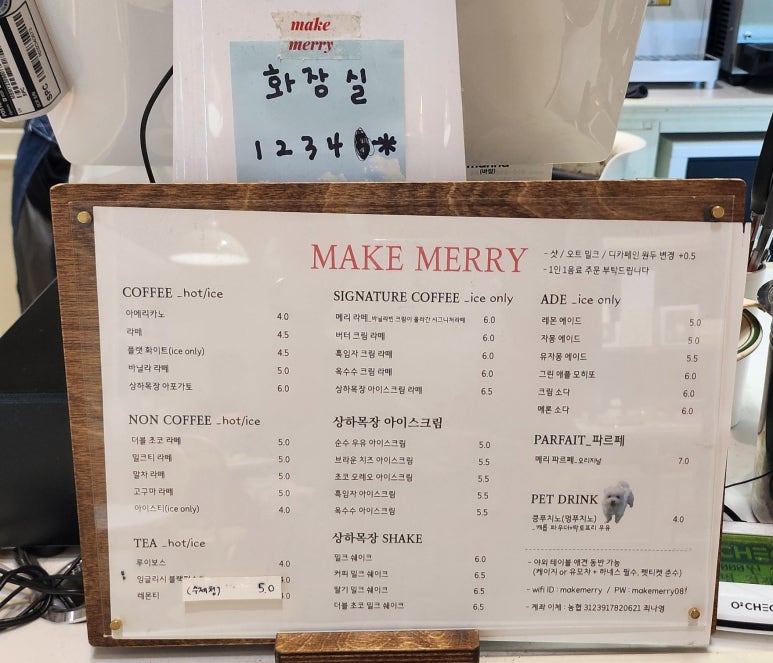 make
merry
화장실
1 2 3 4 *
SPC
manna
(바람)
MAKE MERRY
- 샷 / 오트 밀크 / 디카페인 원두 변경 +0.5
- 1인 1음료 주문 부탁드립니다
COFFEE _hot/ice
아메리카노 4.0
라떼 4.5
플랫 화이트(ice only) 4.5
바닐라 라떼 5.0
상하목장 아포가토 6.0
NON COFFEE _hot/ice
더블 초코 라떼 5.0
밀크티 라떼 5.0
말차 라떼 5.0
고구마 라떼 5.0
아이스티(ice only) 4.0
TEA _hot/ice
루이보스 4.0
잉글리시 블랙 4.0
레몬티 (수제청) 5.0
SIGNATURE COFFEE _ice only
메리 라떼_바닐라빈 크림이 올라간 시그니처라떼 6.0
버터 크림 라떼 6.0
흑임자 크림 라떼 6.0
옥수수 크림 라떼 6.0
상하목장 아이스크림 라떼 6.5
상하목장 아이스크림
순수 우유 아이스크림 5.0
브라운 치즈 아이스크림 5.5
초코 오레오 아이스크림 5.5
흑임자 아이스크림 5.5
옥수수 아이스크림 5.5
상하목장 SHAKE
밀크 쉐이크 6.0
커피 밀크 쉐이크 6.5
딸기 밀크 쉐이크 6.5
더블 초코 밀크 쉐이크 6.5
ADE _ice only
레몬 에이드 5.0
자몽 에이드 5.0
유자몽 에이드 5.5
그린 애플 모히또 6.0
크림 소다 6.0
메론 소다 6.0
PARFAIT_파르페
메리 파르페_오리지널 7.0
PET DRINK
콩푸치노(멍푸치노) 4.0
_캐롭 파우더+락토프리 우유
- 야외 테이블 애견 동반 가능
(케이지 or 유모차 + 하네스 필수, 펫티켓 준수)
- wifi ID : makemerry / PW : makemerry08!
- 계좌 이체 : 농협 3123917820621 최나영
O²CHE